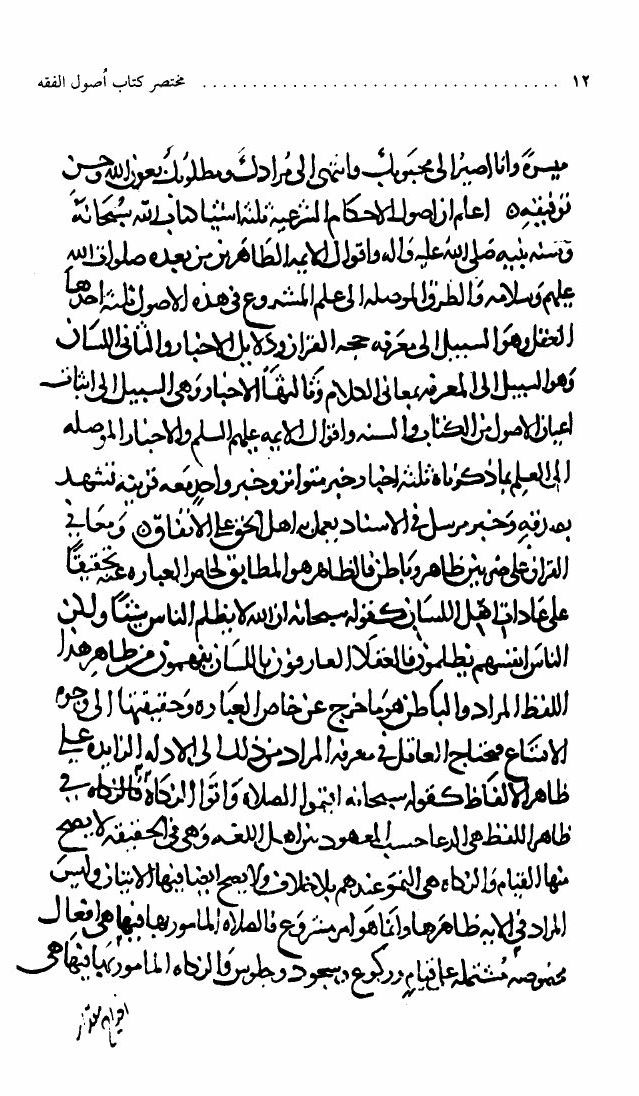 ١٢ . . . . . . . . . . . . . . . . . . . . . . . . . . . . . . . . . . . مختصر كتاب أصول الفقه
ميسرة وانا اصير الى محبوبك وانتهى الى مرادك ومطلوبك بعون الله وحسن
توفيقه اعلم ان اصول الاحكام الشرعية ثلثة اشيا كتاب الله سبحانه
وسنه نبيه صلى الله عليه واله واقوال الايمه الطاهرين من بعده صلوات الله
عليهم وسلامه والطرق الموصله الى علم المشروع فى هذه الاصول ثلثة احدها
العقل وهو السبيل الى معرفه حجه القران ودلايل الاخبار والثانى اللسان
وهو السبيل الى المعرفه بمعانى الكلام وثالثها الاخبار وهى السبيل الى اثبات
اعيان الاصول من الكتاب والسنه واقوال الايمه عليهم السلم والاخبار الموصله
الى العلم بما ذكرناه ثلثة اخبار خبر متواتر وخبر واحد معه قرينه تشهد
بصدقه وخبر مرسل فى الاسناد يعمل به اهل الحق على الاتفاق ومعانى
القران على ضربين ظاهر وباطن فالظاهر هو المطابق لخاص العباره عنه تحقيقًا
على عادات اهل اللسان كقوله سبحانه ان الله لا يظلم الناس شيئًا ولكن
الناس انفسهم يظلمون فالعقلا العارفون باللسان يفهمون من ظاهر هذا
اللفظ المراد والباطن هو ما خرج عن خاص العباره وحقيقتها الى وجوه
الاتساع فيحتاج العاقل فى معرفه المراد من ذلك الى الادله الزايده على
ظاهر الالفاظ كقوله سبحانه اقيموا الصلاه واتوا الزكاة فالصلاه فى
ظاهر اللفظ هى الدعا حسب المعهود من اهل اللغه وهى فى الحقيقه لا يصح
منها القيام والزكاه هى النمو عندهم بلا خلاف ولا يصح ايضا فيها الاتيان وليس
المراد فى الايه ظاهرها وانما هو امر مشروع فالصلاه المامور بها فيها هى افعال
مخصوصه مشتمله على قيام وركوع وسجود وجلوس والزكاه المامور بها فيها هى